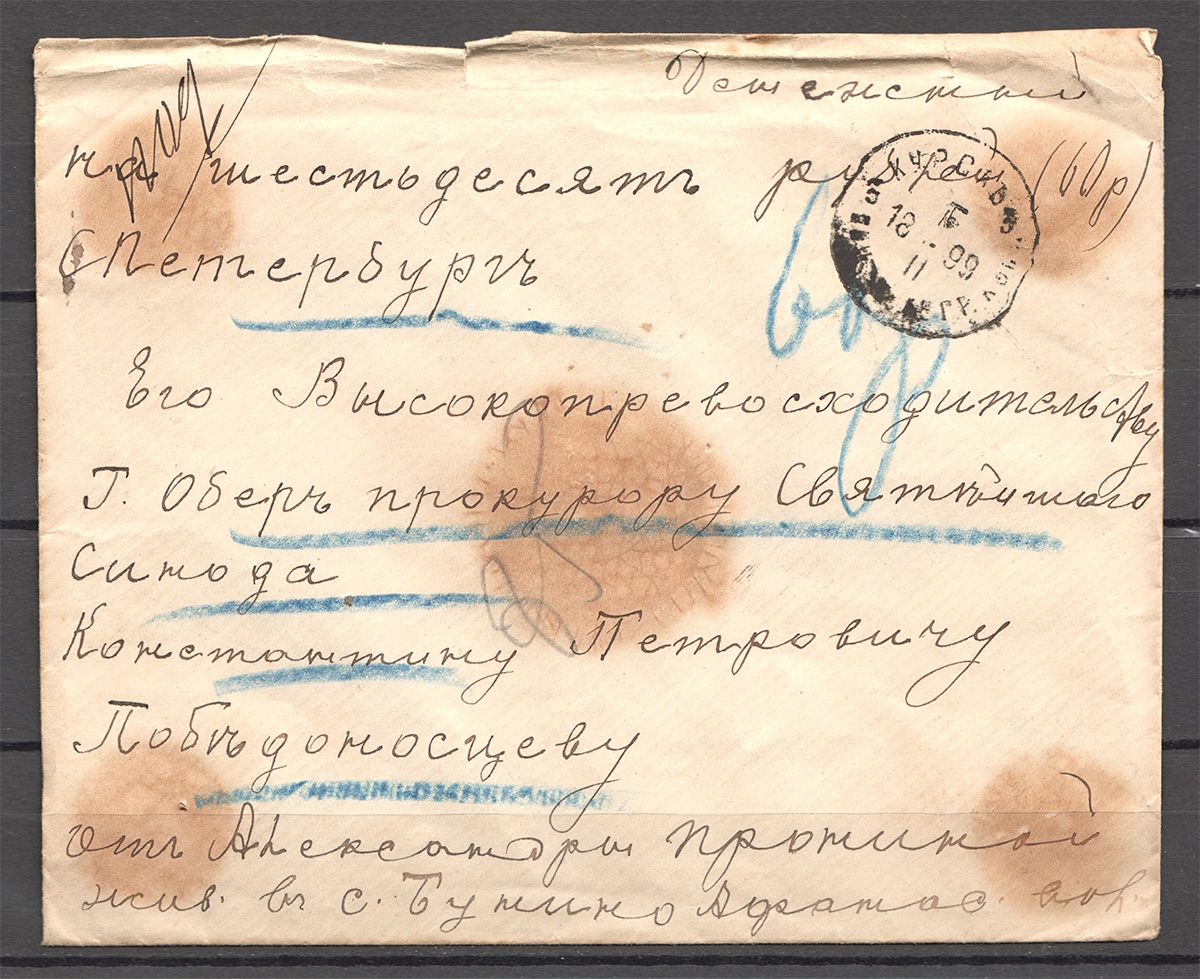 Денежный
на шестьдесятъ рублей (60 р)
СПетербургъ
60 р
Его Высокопревосходительству
Г. Оберъ прокурору Святѣйшаго
Синода
Константину Петровичу
Побѣдоносцеву
отъ Александры Прониной
жив. въ с. Бунино Афанас. вол.
КУРСКЪ
18 II 99